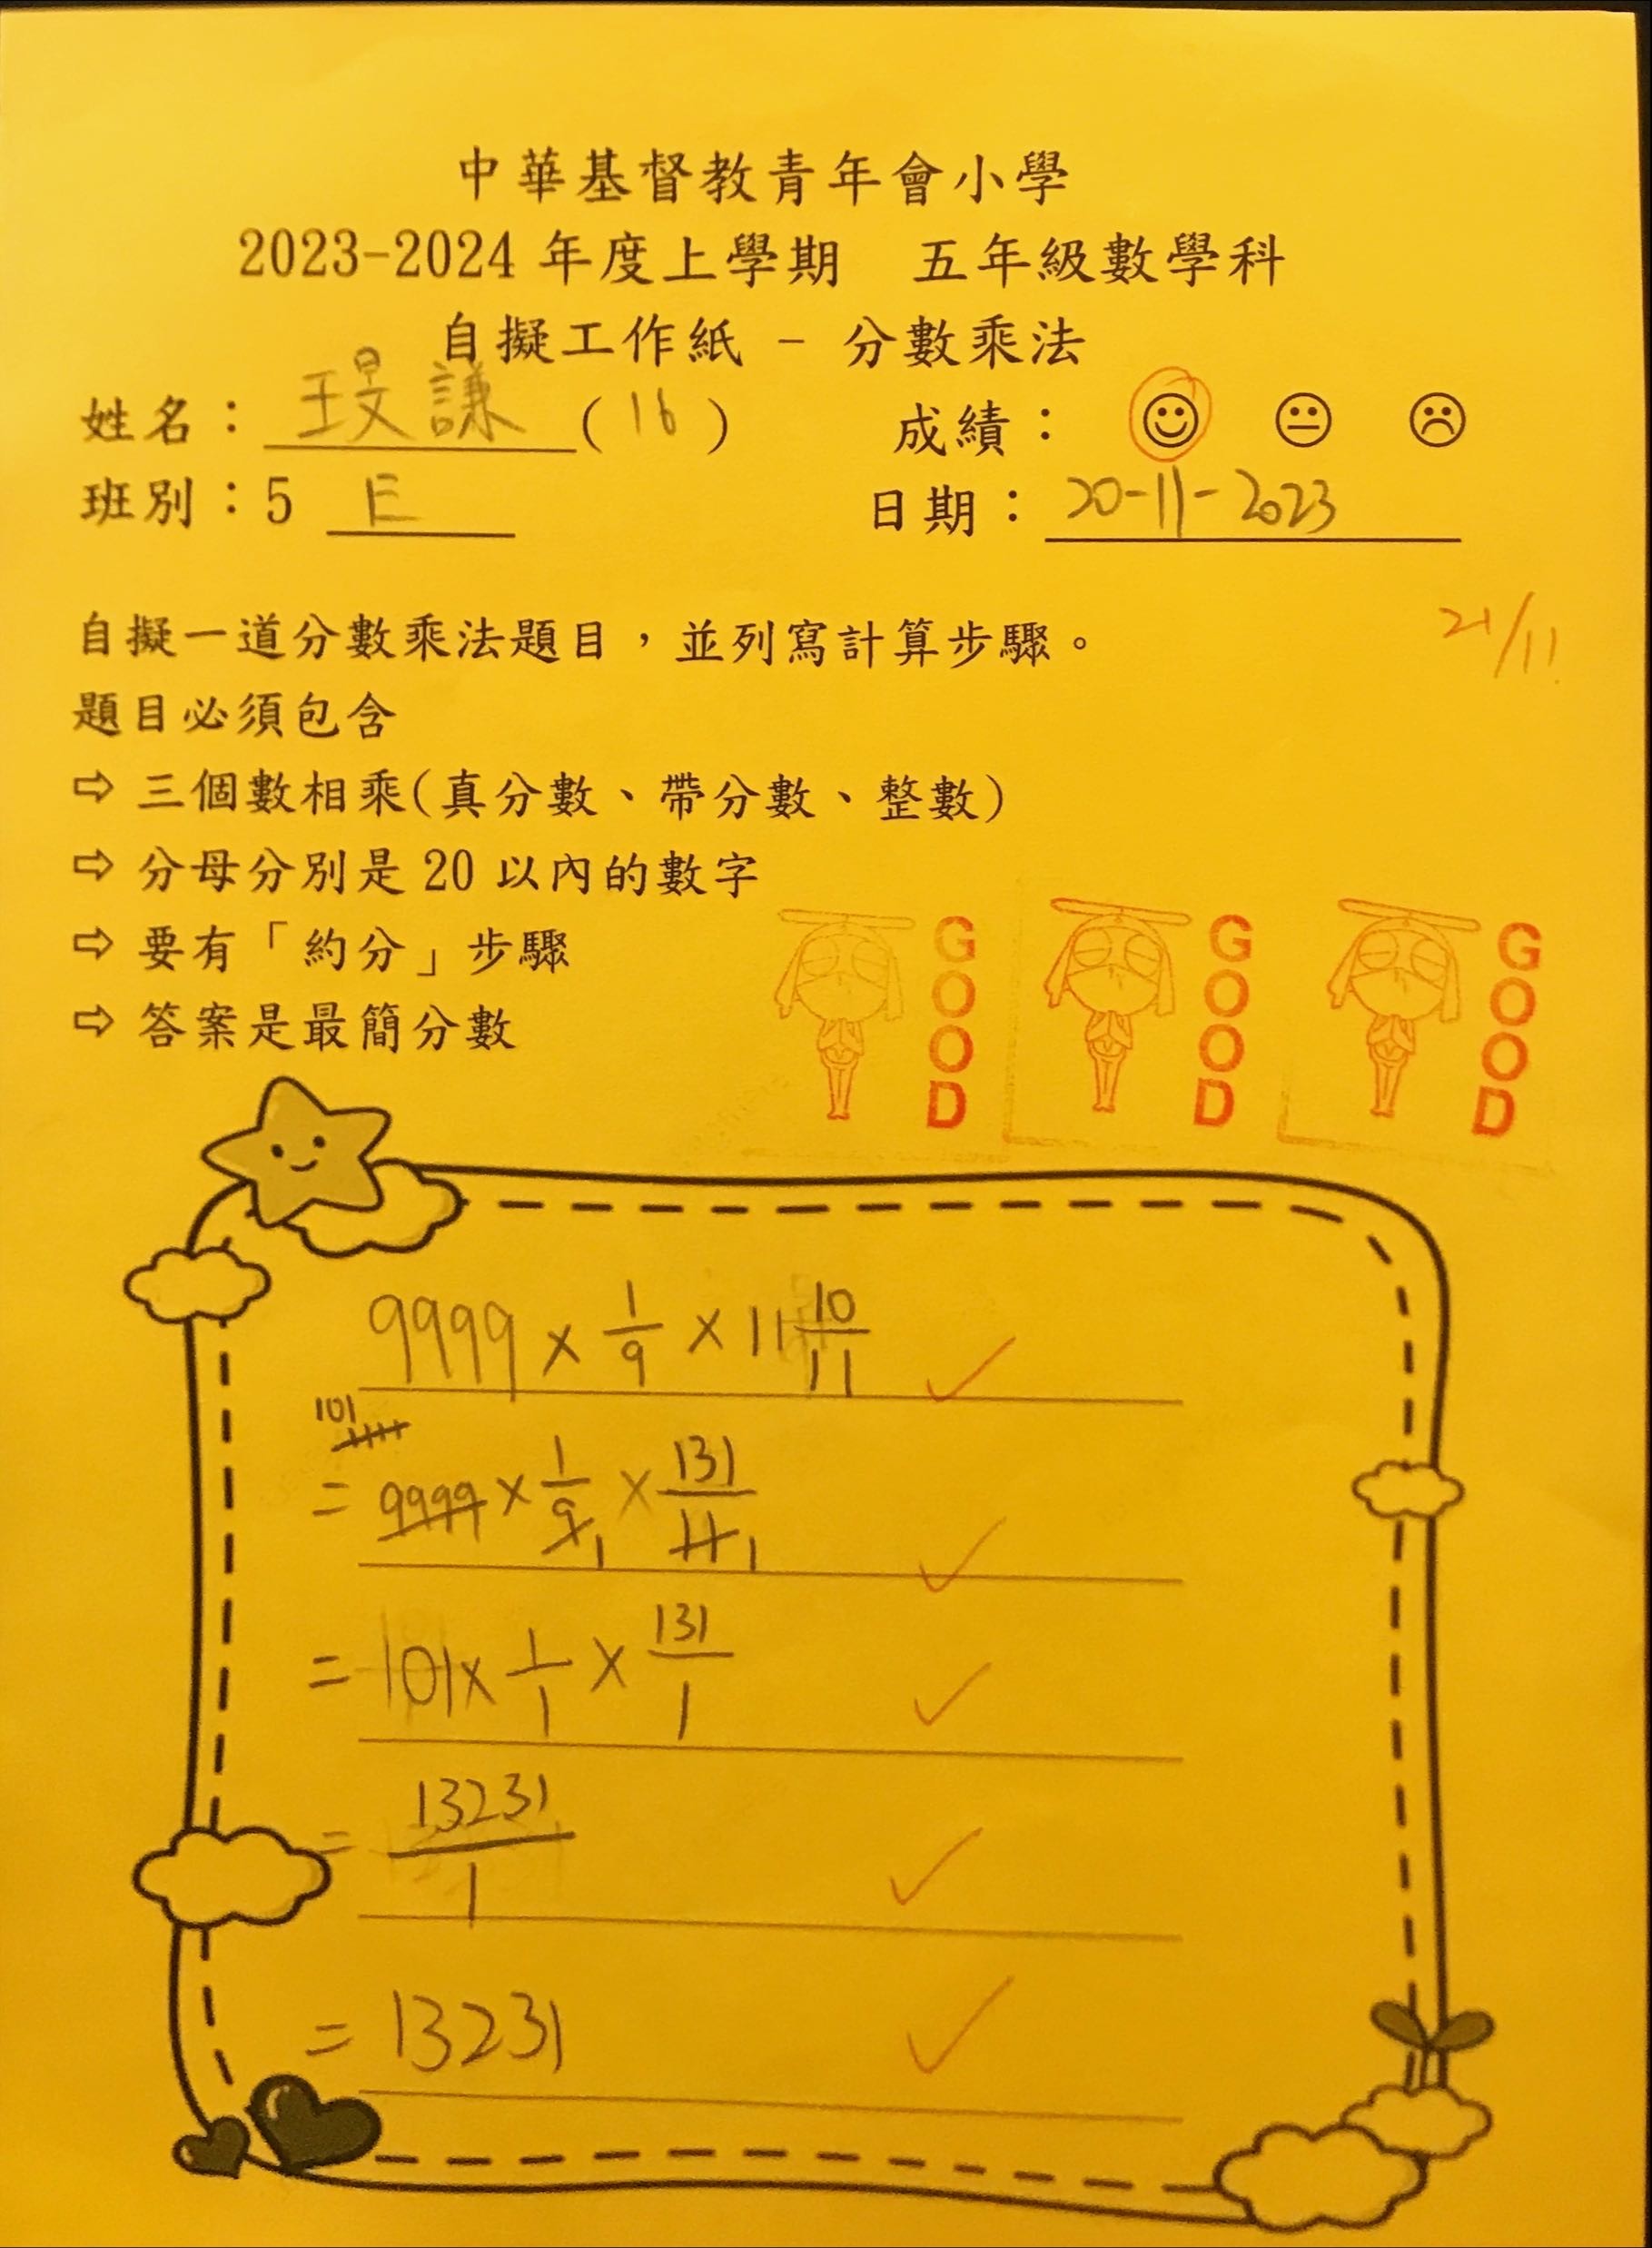 中華基督教青年會小學
2023-2024 年度上學期 五年級數學科
自擬工作紙 - 分數乘法
姓名：王旻謙(16) 成績：
班別：5 E 日期：20-11-2023
21/11
自擬一道分數乘法題目，並列寫計算步驟。
題目必須包含
⇨ 三個數相乘(真分數、帶分數、整數)
⇨ 分母分別是 20 以內的數字
⇨ 要有「約分」步驟
⇨ 答案是最簡分數
GOOD GOOD GOOD
9999 × 1/9 × 11 10/11
101 1111
= 9999 × 1/9 1 × 131/11 1
= 101 × 1/1 × 131/1
= 13231/1
= 13231